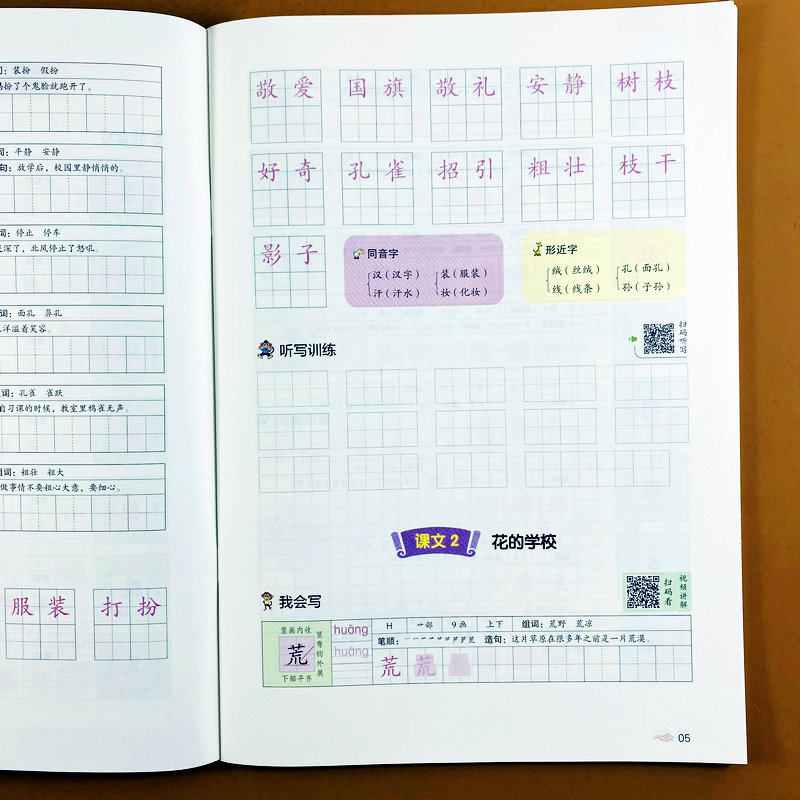 词：装扮 假扮
扮了个鬼脸就跑开了。
词：平静 安静
句：放学后，校园里静悄悄的。
词：停止 停车
深了，北风停止了怒吼。
词：面孔 鼻孔
洋溢着笑容。
词：孔雀 雀跃
自习课的时候，教室里鸦雀无声。
组词：粗壮 粗大
做事情不要粗心大意，要细心。
服装 打扮
敬爱 国旗 敬礼 安静 树枝
好奇 孔雀 招引 粗壮 枝干
影子
同音字
汉（汉字） 装（服装）
汗（汗水） 妆（化妆）
形近字
绒（丝绒） 孔（面孔）
线（线条） 孙（子孙）
听写训练
扫码听写
课文2 花的学校
我会写
扫码看
视频讲解
竖画内收
荒
竖弯钩外展
下部平齐
huāng
huāng
H 艹部 9画 上下 组词：荒野 荒凉
笔顺： 造句：这片草原在很多年之前是一片荒漠。
荒 荒
05